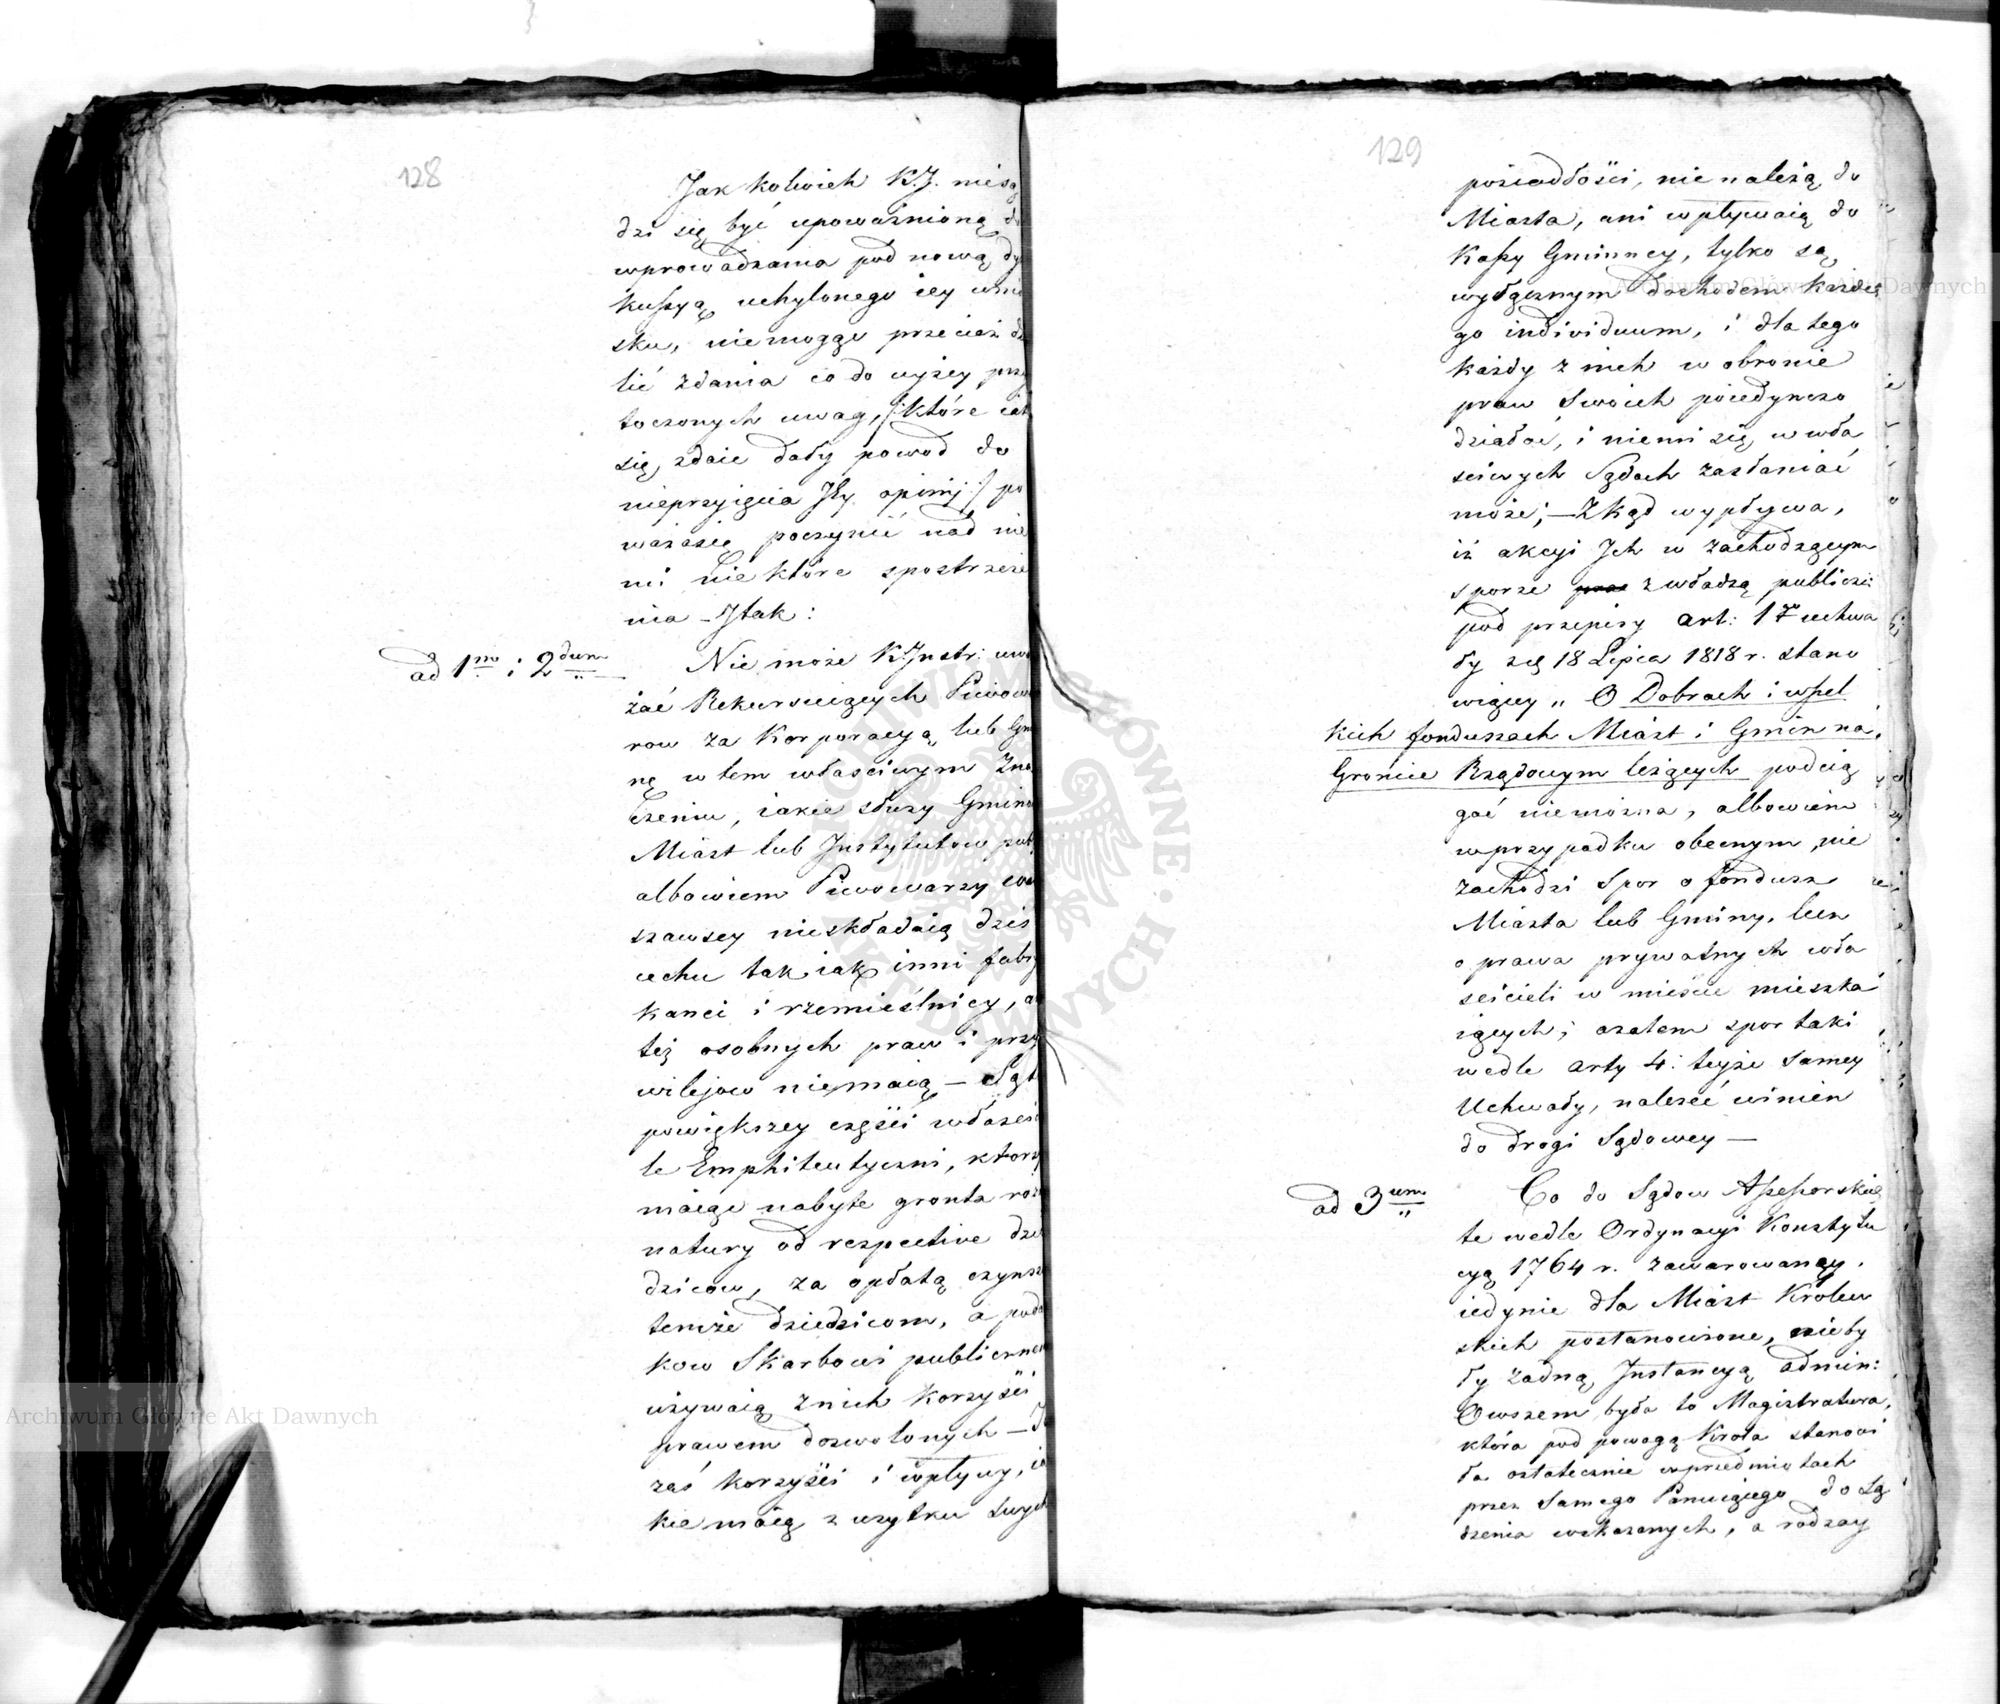 128
Jak kolwiek K.J. niesą
dzi się być upoważnioną
wprowadzania pod nową dy
kussyą uchylonego iey wnio
sku, niemogąc przecież
lić zdania co do wyżey przy
toczonych uwag, /:które iak
się zdaie dały powod do
nieprzyięcia Jey opinij:/ po
ważasię poczynić nad nie
mi niektóre spostrzeże
nia – Jtak:
ad 1mo i 2dum
Nie może K.Jnstr: uwa
żać Rekursuiących Piwowa
row za Korporacyą lub Gmi
nę w tem właściwym Zna
czeniu, iakie służy Gminom
Miast lub Jnstytutow pub:
albowiem Piwowarzy War
szawscy nieskładaią dziś
cechu tak iak inni fabry
kanci i rzemieślnicy, a
też osobnych praw i przy
wilejow niemaią – Są
powiększey części właści
le Emphiteutyczni, którzy
maiąc nabyte gronta róż
natury od respective dzie
dzicow, za opłatą czynszu
temże dziedzicom, a podat
kow Skarbowi publicznemu
używaią z nich korzyści
prawem dozwolonych –
zaś korzyści i wpływy, ia
kie maią z użytku swych
129
posiadłości, nie należą do
Miasta, ani wpływaią do
Kassy Gminney, tylko są
wyłącznym dochodem każde
go individuum, i dla tego
każdy z nich w obronie
praw Swoich poiedynczo
działać, i niemi się w wła
ściwych Sądach zasłaniać
może; – Zkąd wypływa,
iż akcyi Jch w zachodzącym
sporze z władzą publicz:
pod przepisy art: 17 uchwa
ły z 18 Lipca 1818 r. stano
wiący „O Dobrach i wszel
kich funduszach Miast i Gmin na
Groncie Rządowym leżących podcią
gać niemożna, albowiem
w przypadku obecnym, nie
zachodzi Spor o fundusz
Miasta lub Gminy, lecz
o prawa prywatnych wła
ścicieli w mieście mieszka
iących; azatem spor taki
wedle arty 4: teyże Samey
Uchwały, należeć winien
do drogi Sądowey –
ad 3um
Co do Sądow Assessorskich
te wedle Ordynacyi Konstytu
cyą 1764 r. zawarowaney,
iedynie dla Miast Królew
skich postanowione, nieby
ły żadną Jnstancyą admin:
Owszem była to Magistratura,
która pod powagą Krola stanowi
ła ostatecznie w przedmiotach
przez Samego Panuiącego do są
dzenia wskazanych, a rodzay